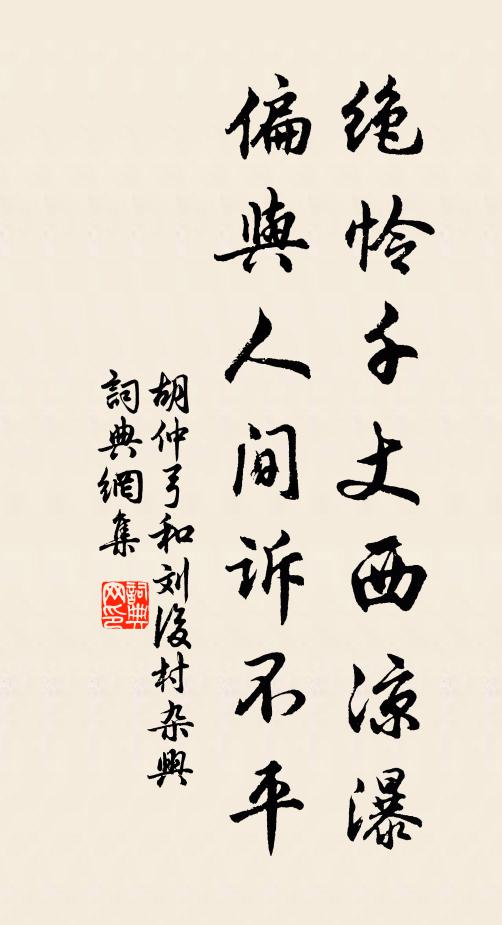 絶怜千丈西凉瀑
偏與人间诉不平
胡仲弓和刘後村杂興
詞典網集
詞典网印